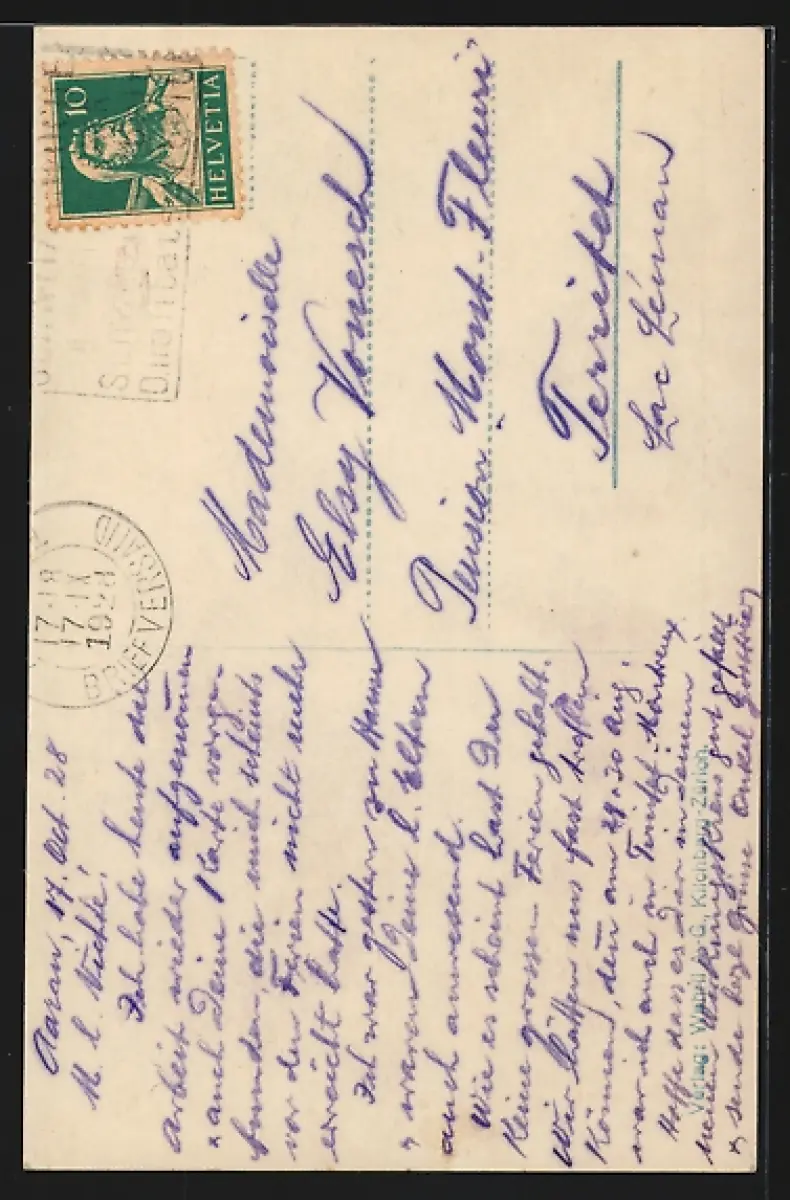 10
HELVETIA
17.IX
1928
BRIEFVERSAND
Mademoiselle
Elsy Vonesch
Pension Mont-Fleuri
Territet
Lac Léman
Aarau, 17. Oct. 28
M. l. Nichte!
Ich habe heute die
Arbeit wieder aufgenommen
& auch Deine Karte vorge-
funden, die mich scheints
vor den Ferien nicht mehr
erreicht hatte.
Ich war gestern zu Hause
& waren Deine l. Eltern
auch anwesend.
Wie es scheint hast Du
keine grossen Ferien gehabt.
Wir hätten uns fast treffen
können, denn am 29. & 30 Aug.
war ich auch in Territet-Montreux
Hoffe dass es Dir in Deinem
neuen Wirkungskreis gut gefällt
& sende herzl Grüsse Onkel
Verlag: Wehrli A.-G., Kilchberg-Zürich.